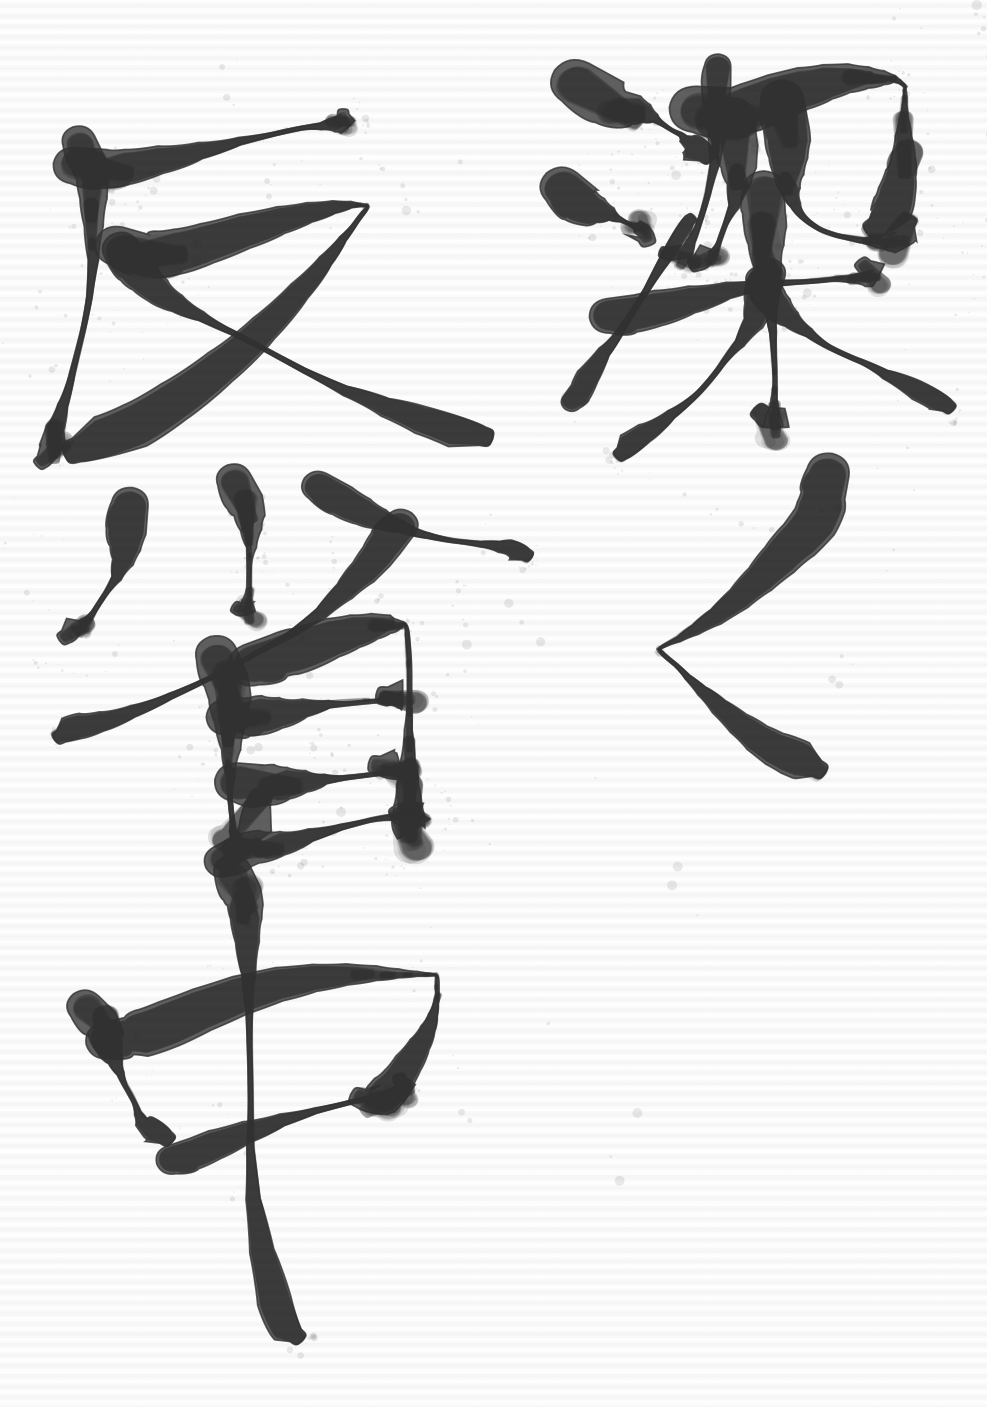 深く
反省中